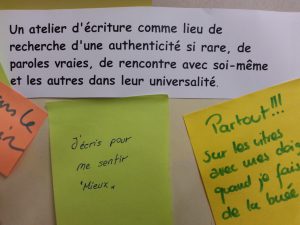 Un atelier d'écriture comme lieu de
recherche d'une authenticité si rare, de
paroles vraies, de rencontre avec soi-même
et les autres dans leur universalité.
le
J'écris pour
me sentir
"Mieux"
Partout!!!
Sur les vitres
avec mes doig
quand je fais
de la buée